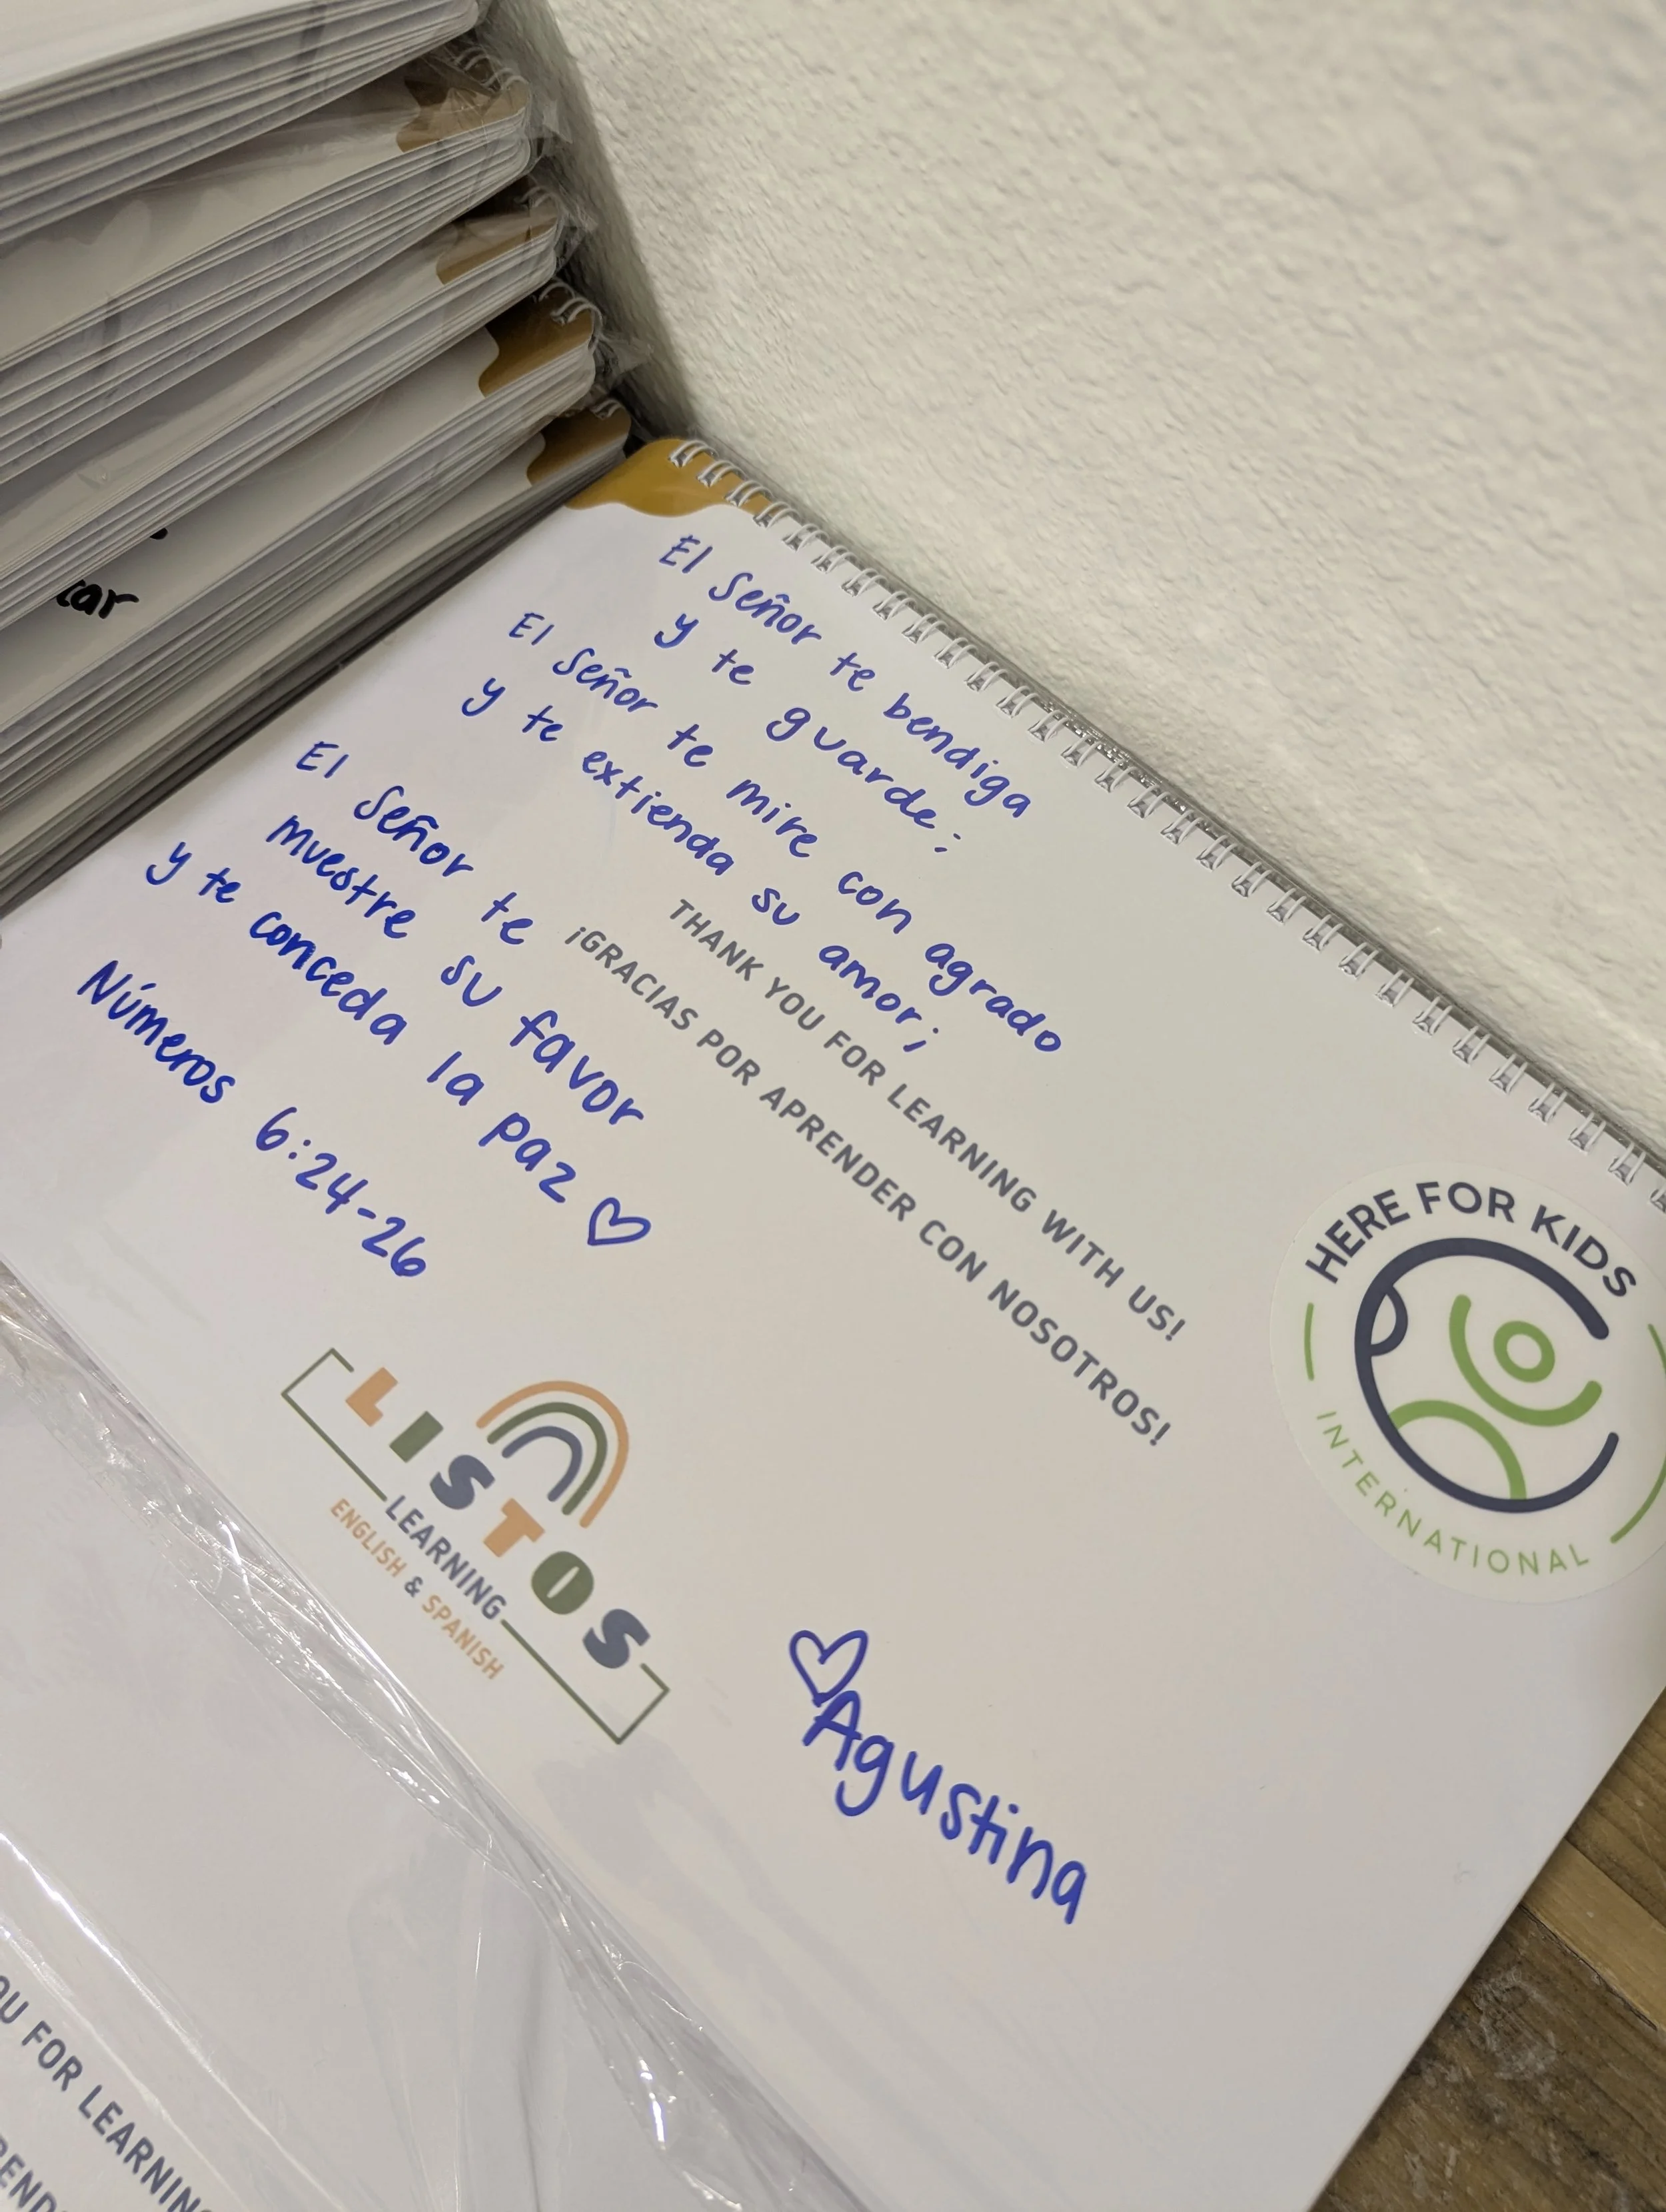 car
El Señor te bendiga
y te guarde;
El Señor te mire con agrado
y te extienda su amor;
El Señor te
muestre su favor
y te conceda la paz ♡
Números 6:24-26
THANK YOU FOR LEARNING WITH US!
¡GRACIAS POR APRENDER CON NOSOTROS!
HERE FOR KIDS
INTERNATIONAL
LISTOS
LEARNING
ENGLISH & SPANISH
♡Agustina
OU FOR LEARNING